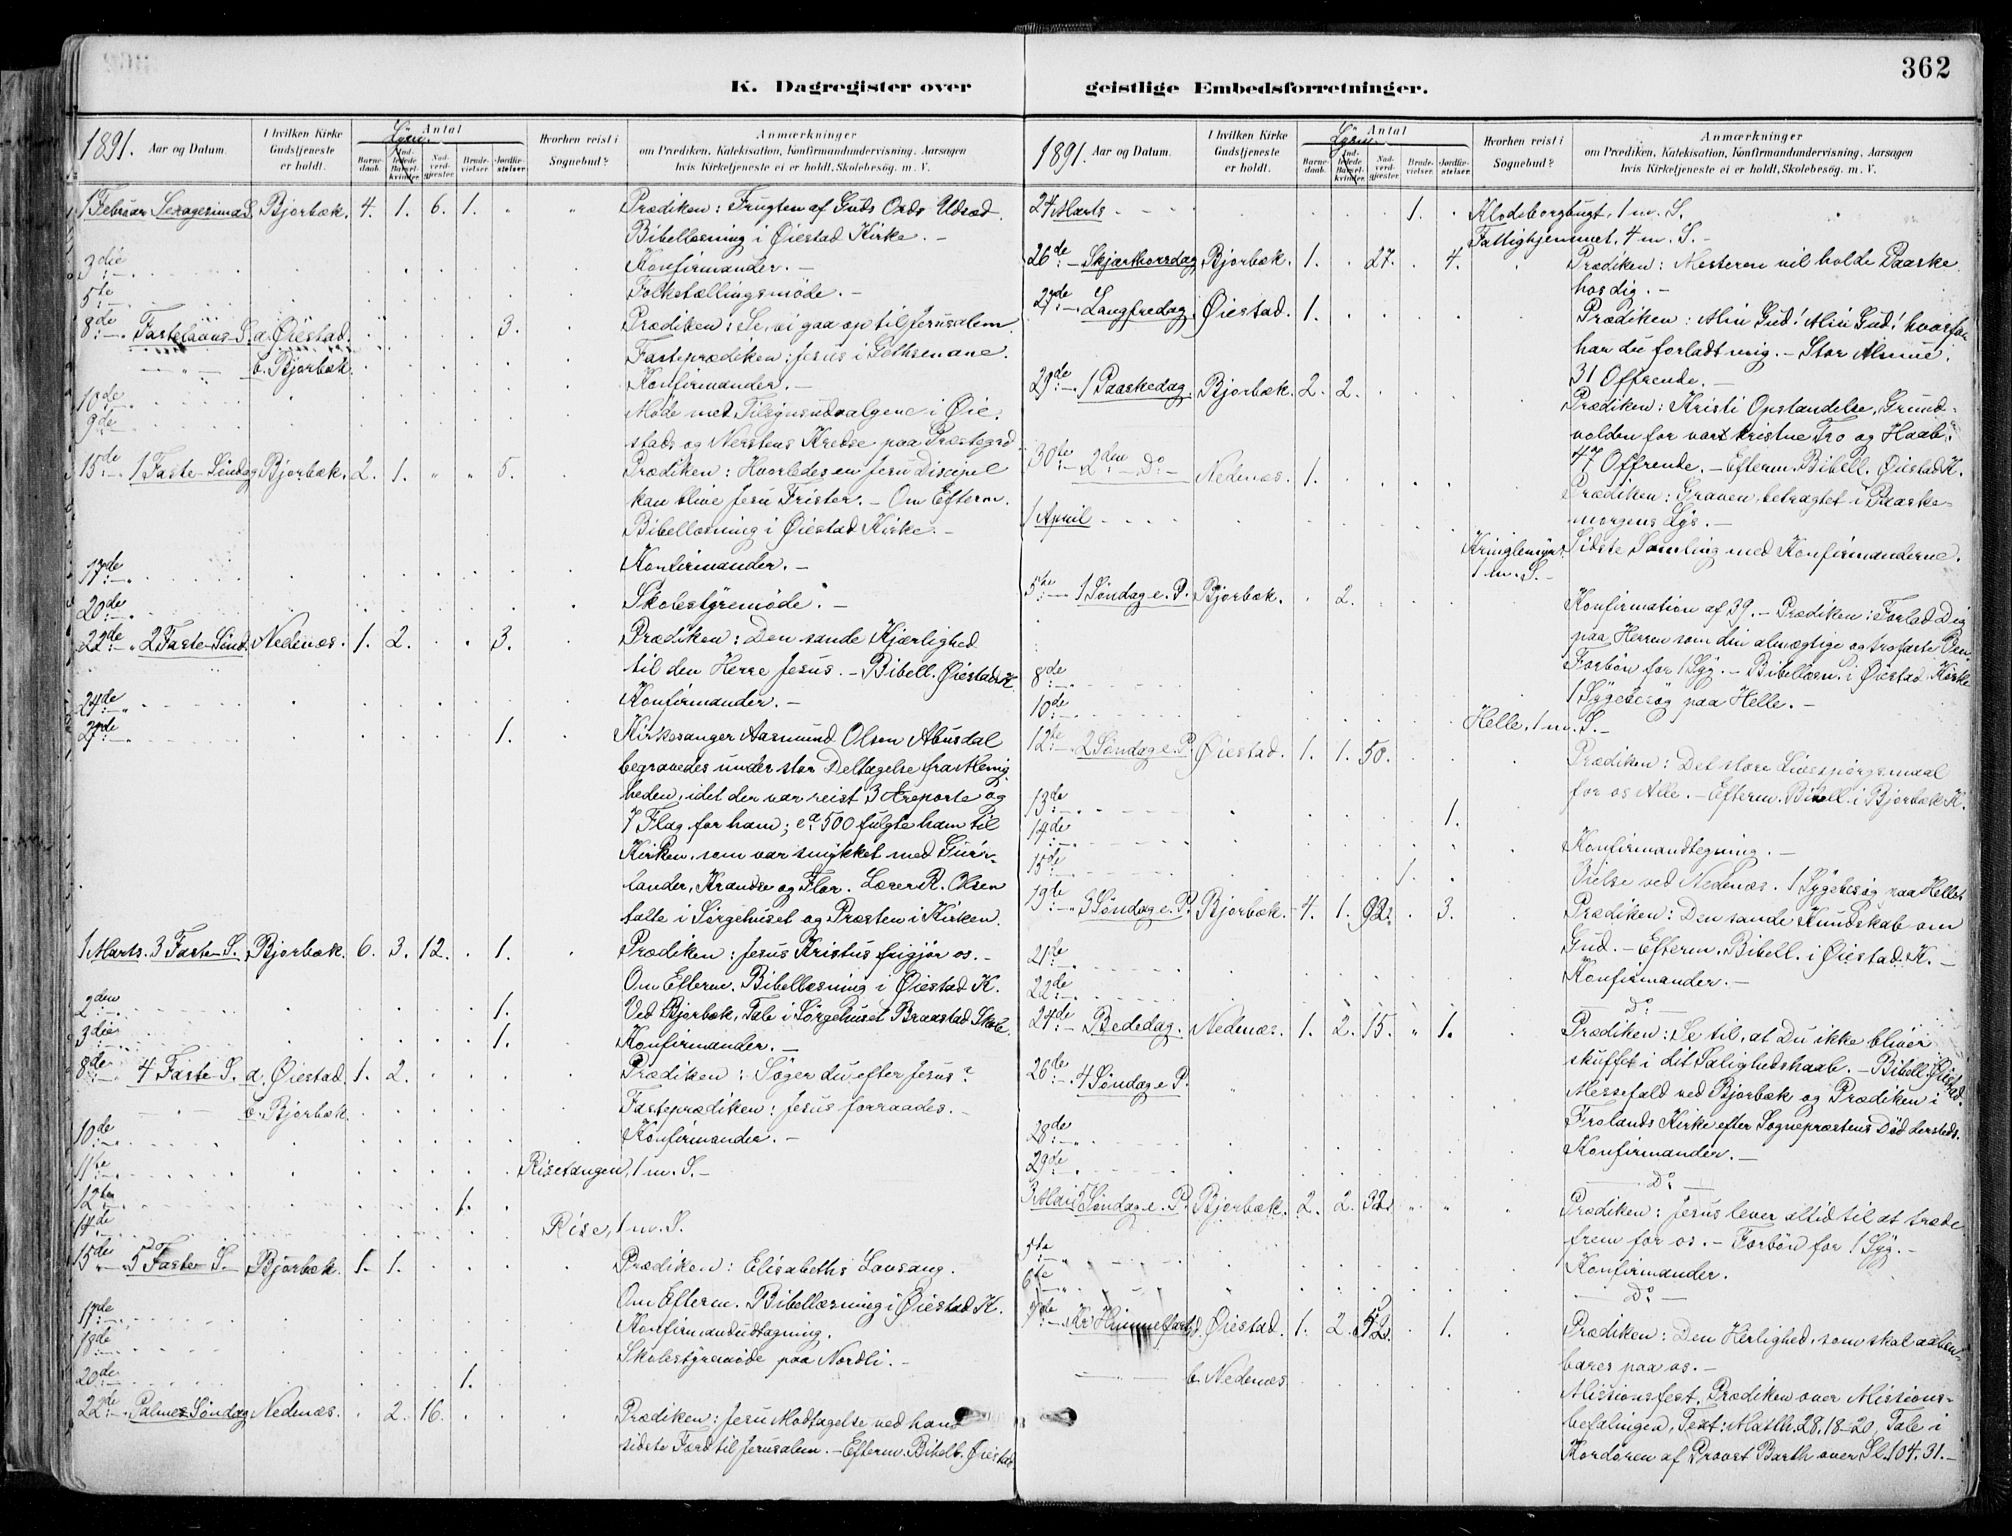 362
K. Dagregister over
1891. Aar og Datum. I hvilken Kirke Gudstjeneste er holdt. Antal Lysn. Barnedaab. Indledede Barselkvinder. Nadverdgjæster. Brudevielser. Jordfæstelser. Hvorhen reist i Sognebud? Anmærkninger
om Prædiken, Katekisation, Konfirmandundervisning. Aarsagen
hvis Kirketjeneste ei er holdt, Skolebesøg. m. V.
1 Februar Sexagesima S. Bjorbæk. 4. 1. 6. 1. " " Prædiken: Frugten af Guds Ords Udsæd.
Bibellæsning i Øiestad Kirke. —
3die Konfirmander. —
5te Folketællingsmøde. —
8de Fastelavns-S. a. Øiestad. 3. Prædiken: Se, vi gaa op til Jerusalem.
b. Bjorbæk. Fasteprædiken: Jesus i Gethsemane.
10de Konfirmander. —
9de Møde med Tilsynsudvalgene i Øie-
stads og Nerstens Kredse paa Præstegrd
15de 1 Faste-Søndag Bjorbæk. 2. 1. " " 5. Prædiken: Hvorledes en Jesu Discipel
kan blive Jesu Frister. — Om Efterm.
Bibellæsning i Øiestad Kirke. —
17de Konfirmander. —
20de Skolestyremøde. —
22de 2 Faste-Sønd. Nedenæs. 1. 2. 3. Prædiken: Den sande Kjærlighed
til den Herre Jesus. — Bibell. Øiestads K.
24de Konfirmander. —
27de 1. Kirkesanger Aasmund Olsen Abusdal
begravedes under stor Deltagelse fra Menig-
heden, idet der var reist 3 Æreporte og
7 Flag for ham; ca 500 fulgte ham til
Kirken, som var smykket med Guir-
lander, Krandse og Flor. Lærer R. Olsen
talte i Sørgehuset og Præsten i Kirken.
1 Marts. 3 Faste-S. Bjorbæk. 6. 3. 12. 1. Prædiken: Jesus Kristus frigjør os. —
Om Efterm. Bibellæsning i Øiestad K.
2den 1. Ved Bjorbæk, Tale i Sørgehuset Braastad Skole
3die 1. Konfirmander. —
8de 4 Faste S. a. Øiestad. 1. 2. Prædiken: Søger du efter Jesus?
b. Bjorbæk Fasteprædiken: Jesus forraades. —
10de Konfirmander. —
11te Risetangen, 1 m. S. —
12te 1.
14de Rise, 1 m. S.
15de 5 Faste-S. Bjorbæk. 1. 1. Prædiken: Elisabeths Lovsang.
Om Efterm. Bibellæsning i Øiestad K.
17de Konfirmandudtagning.
18de Skolestyremøde paa Nordli. —
20de 1.
22de Palme Søndag Nedenæs. 2. 16. Prædiken: Jesu Modtagelse ved hans
sidste Færd til Jerusalem. — Efterm. Bibell. Øiestad
geistlige Embedsforretninger.
1891. Aar og Datum. I hvilken Kirke Gudstjeneste er holdt. Antal Lysn. Barnedaab. Indledede Barselkvinder. Nadverdgjæster. Brudevielser. Jordfæstelser. Hvorhen reist i Sognebud? Anmærkninger
om Prædiken, Katekisation, Konfirmandundervisning. Aarsagen
hvis Kirketjeneste ei er holdt, Skolebesøg. m. V.
24 Marts 1. Klodeborgbugt, 1 m. S.
Fattighjemmet, 4 m. S. —
26de Skjærthorsdag Bjorbæk. 1. 27. 4. Prædiken: Mesteren vil holde Paaske
hos dig. —
27de Langfredag. Øiestad. 1. Prædiken: Min Gud! Min Gud! hvorfor
har du forladt mig. — Stor Almue.
31 Offrende. —
29de 1 Paaskedag. Bjorbæk. 2. 2. Prædiken: Kristi Opstandelse, Grund-
volden for vor kristne Tro og Haab.
47 Offrende. — Efterm. Bibell. Øiestad K.
30te 2den Do Nedenæs. 1. Prædiken: Graven, betragtet i Paaske-
morgens Lys. —
1 April Sidste Samling med Konfirmanderne.
1 m. S. —
5te 1 Søndag e. P. Bjorbæk. 2. Konfirmation af 39. — Prædiken: Forlad Dig
paa Herren som din almægtige og trofaste Ven.
Forbøn for 1 Syg. — Bibellæsn. i Øiestad Kirke
8de 1 Sygebesøg paa Helle. —
10de Helle, 1 m. S. —
12te 2 Søndag e. P. Øiestad. 1. 1. 50. Prædiken: Det store Livsspørgsmaal
for os Alle. — Efterm. Bibell. i Bjorbæk K.
13de 1.
14de Konfirmandtegning. —
15de 1. Vielse ved Nedenæs. 1 Sygebesøg paa Helle
19te 3 Søndag e. P. Bjorbæk. 4. 1. 92. 3. Prædiken: Den sande Kundskab om
Gud. — Efterm. Bibell. i Øiestad K. —
21de Konfirmander. —
22de Do
24de Bededag. Nedenæs. 1. 2. 15. " 1. Prædiken: Se til, at Du ikke bliver
skuffet i dit Salighedshaab. — Bibell. Øiestad.
26de 4 Søndag e P. Messefald ved Bjorbæk og Prædiken i
Frolands Kirke efter Sognepræstens Død dersteds.
28de Konfirmander. —
29de Do —
3 Mai 5 Søndag e. P. Bjorbæk. 2. 2. 32. " " Prædiken: Jesus lever altid til at træde
frem for os. — Forbøn for 1 Syg. —
5te Konfirmander.
6te Do —
7de Kr Himmelfart a. Øiestad. 1. 2. 52. 1. Prædiken: Den Herlighed, som skal aaben-
bares paa os. —
b. Nedenæs Missionsfest. Prædiken over Missions-
befalingen, Text: Matth. 28, 18-20, Tale i
Kordøren af Provst Barth over Sl. 104. 31. —